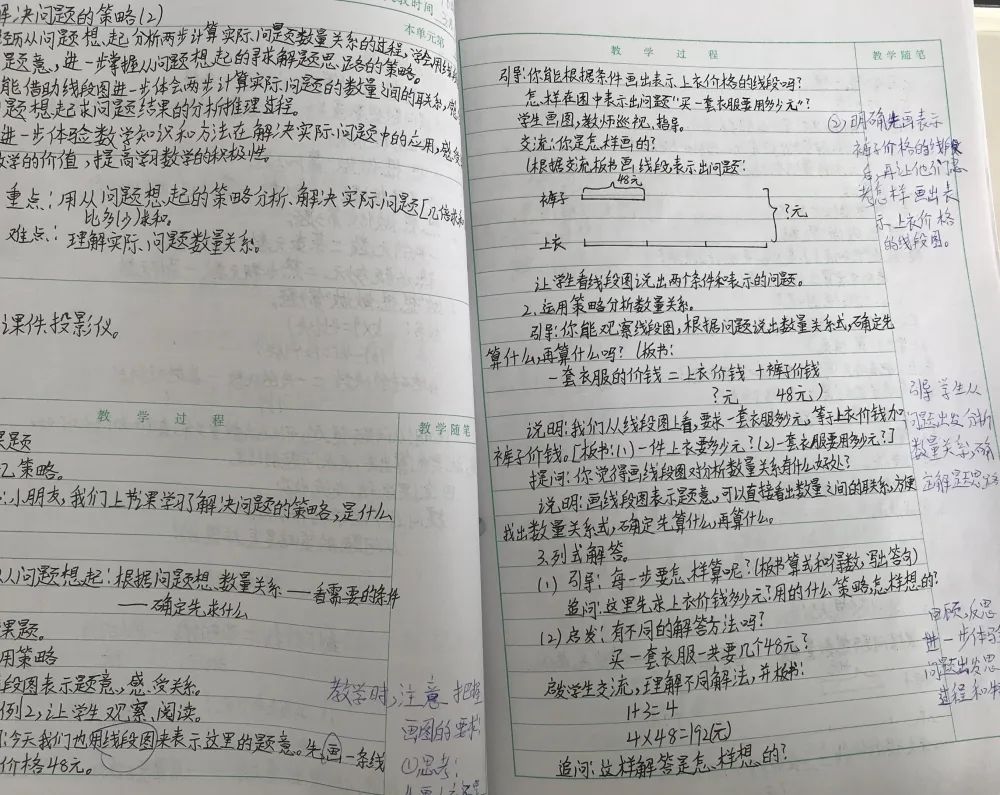 解决问题的策略(2)
教时间
本单元第
经历从问题想起分析两步计算实际问题数量关系的过程,学会用线
题意,进一步掌握从问题想起的寻求解题思路的策略。
能借助线段图进一步体会两步计算实际问题的数量之间的联系,感
问题想起求问题结果的分析推理过程。
进一步体验数学知识和方法在解决实际问题中的应用,感受
数学的价值,提高学习数学的积极性。
重点:用从问题想起的策略分析、解决实际问题[几倍求和
比多(少)求和。
难点:理解实际问题数量关系。
课件投影仪。
教 学 过 程
教学随笔
课题
忆策略。
:小朋友,我们上节课学习了解决问题的策略,是什么
从问题想起:根据问题想数量关系——看需要的条件
——确定先求什么
课题。
用策略
段图表示题意,感受关系。
例2,让学生观察、阅读。
:今天我们也用线段图来表示这里的题意。先画一条线
价格48元。
教学时,注意把握
画图的要求
①思考:
教 学 过 程
教学随笔
引导:你能根据条件画出表示上衣价格的线段吗?
怎样在图中表示出问题“买一套衣服要用多少元”?
学生画图,教师巡视、指导。
交流:你是怎样画的?
(根据交流板书画线段表示出问题:
48元
裤子
?元
上衣
让学生看线段图说出两个条件和表示的问题。
2.运用策略分析数量关系。
引导:你能观察线段图,根据问题说出数量关系式,确定先
算什么,再算什么吗?(板书:
一套衣服的价钱=上衣价钱+裤子价钱
?元 48元)
说明:我们从线段图上看,要求一套衣服多少元,等于上衣价钱加
裤子价钱。[板书:(1)一件上衣要多少元?(2)一套衣服要用多少元?]
提问:你觉得画线段图对分析数量关系有什么好处?
说明:画线段图表示题意,可以直接看出数量之间的联系,方便
找出数量关系式,确定先算什么,再算什么。
3.列式解答。
(1)引导:每一步要怎样算呢?(板书算式和得数,写出答句)
追问:这里先求上衣价钱多少元?用的什么策略,怎样想的?
(2)启发:有不同的解答方法吗?
买一套衣服一共要几个48元?
启发学生交流,理解不同解法,并板书:
1+3=4
4×48=192(元)
追问:这样解答是怎样想的?
②明确先画表示
裤子价格的线段
后,再让他们思
考怎样画出表
示上衣价格
的线段图。
引导学生从
问题出发分析
数量关系,确
立解题思路
回顾,反思
进一步体验
问题出发思
过程和